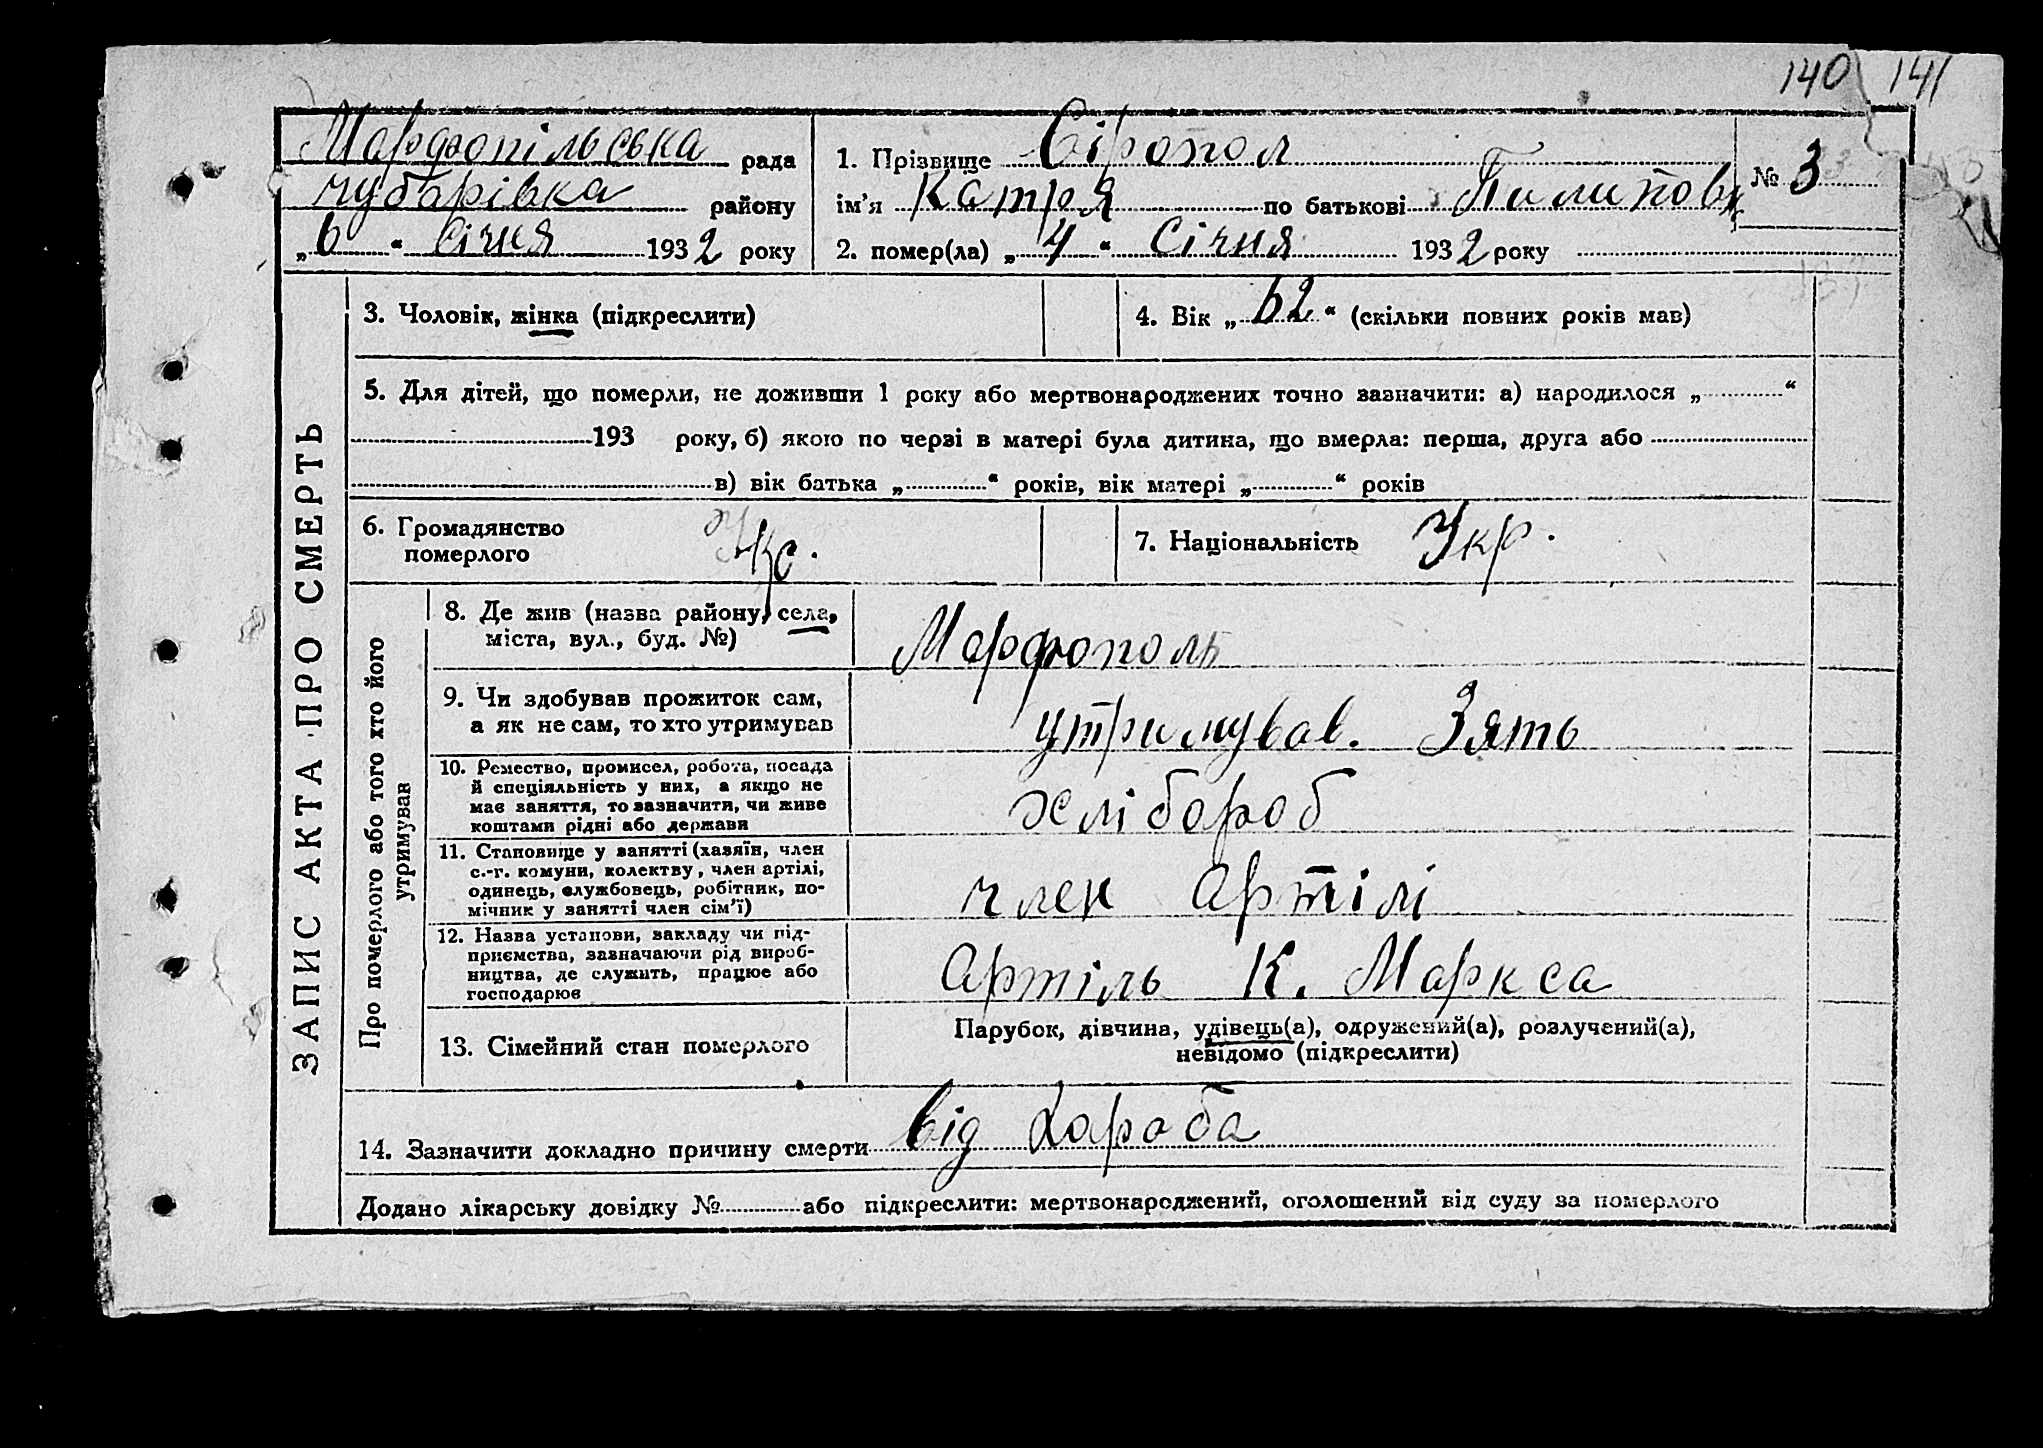 140 141
Марфопільська рада
чубарівка району
„6“ Січня 1932 року
1. Прізвище Сіропол
ім’я Катря по батькові Пилиповн
№ 3
2. помер(ла) „4“ Січня 1932 року
ЗАПИС АКТА ПРО СМЕРТЬ
3. Чоловік, жінка (підкреслити)
4. Вік „62“ (скільки повних років мав)
5. Для дітей, що померли, не доживши 1 року або мертвонароджених точно зазначити: а) народилося „ “
193 року, б) якою по черзі в матері була дитина, що вмерла: перша, друга або
в) вік батька „ “ років, вік матері „ “ років
6. Громадянство
померлого
7. Національність Укр.
Про померлого або того хто його
утримував
8. Де жив (назва району, села,
міста, вул., буд. №)
Марфополь
9. Чи здобував прожиток сам,
а як не сам, то хто утримував
утримував. Зять
10. Ремество, промисел, робота, посада
й спеціяльність у них, а якщо не
має заняття, то зазначити, чи живе
коштами рідні або держави
хлібороб
11. Становище у занятті (хазяїн, член
с.-г. комуни, колектву, член артілі,
одинець, службовець, робітник, по-
мічник у занятті член сім’ї)
член Артілі
12. Назва установи, закладу чи під-
приємства, зазначаючи рід вироб-
ництва, де служить, працює або
господарює
Артіль К. Маркса
13. Сімейний стан померлого
Парубок, дівчина, удівець(а), одружений(а), розлучений(а),
невідомо (підкреслити)
14. Зазначити докладно причину смерти від Хароба
Додано лікарську довідку № або підкреслити: мертвонароджений, оголошений від суду за померлого